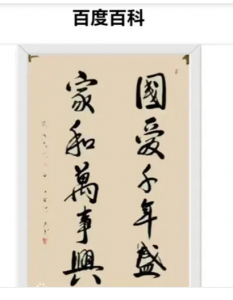 百度百科
國爱千年盛
家和萬事興